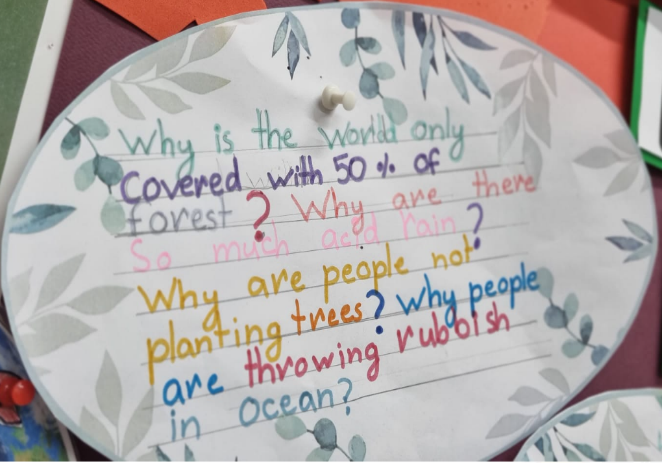 Why is the world only
Covered with 50 % of
forest? Why are there
So much acid rain?
Why are people not
planting trees? Why people
are throwing rubbish
in ocean?